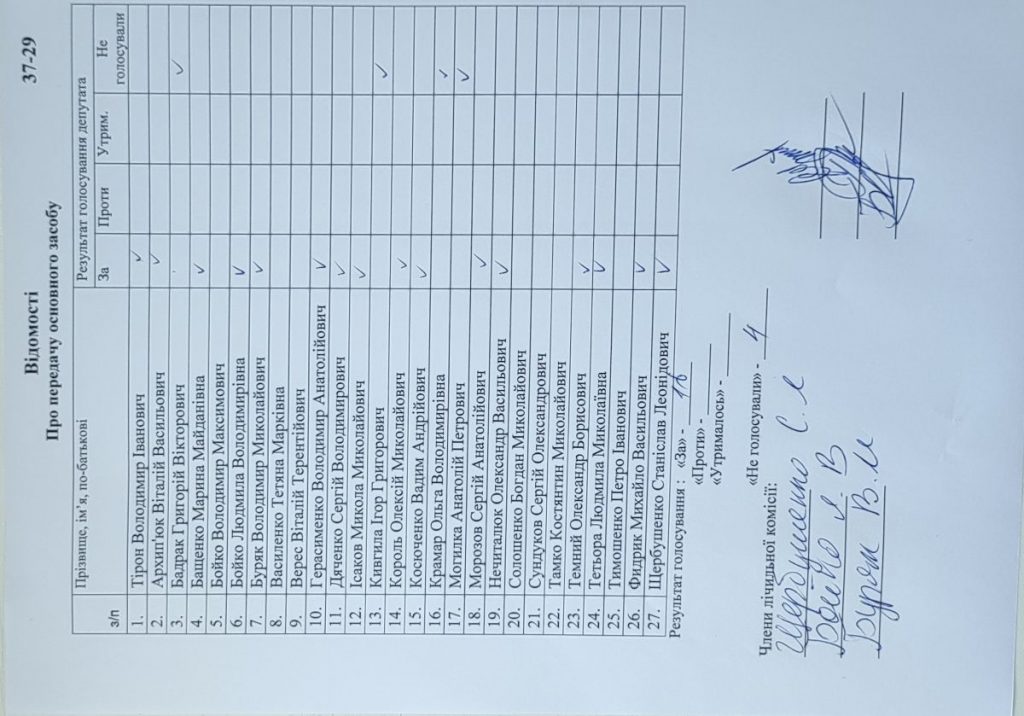 37-29
Відомості
Про передачу основного засобу
з/п Прізвище, ім’я, по-батькові Результат голосування депутата
За Проти Утрим. Не голосували
1. Тірон Володимир Іванович
2. Архип'юк Віталій Васильович
3. Бадрак Григорій Вікторович
4. Бащенко Марина Майданівна
5. Бойко Володимир Максимович
6. Бойко Людмила Володимирівна
7. Буряк Володимир Миколайович
8. Василенко Тетяна Марківна
9. Верес Віталій Терентійович
10. Герасименко Володимир Анатолійович
11. Дяченко Сергій Володимирович
12. Ісаков Микола Миколайович
13. Кивгила Ігор Григорович
14. Король Олексій Миколайович
15. Косюченко Вадим Андрійович
16. Крамар Ольга Володимирівна
17. Могилка Анатолій Петрович
18. Морозов Сергій Анатолійович
19. Нечиталюк Олександр Васильович
20. Солошенко Богдан Миколайович
21. Сундуков Сергій Олександрович
22. Тамко Костянтин Миколайович
23. Темний Олександр Борисович
24. Тетьора Людмила Миколаївна
25. Тимошенко Петро Іванович
26. Фидрик Михайло Васильович
27. Щербушенко Станіслав Леонідович
Результат голосування : «За» - 16
«Проти» -
«Утрималось» -
«Не голосували» - 4
Члени лічильної комісії:
Щербушенко С. Л
Бойко Л. В
Буряк В. М